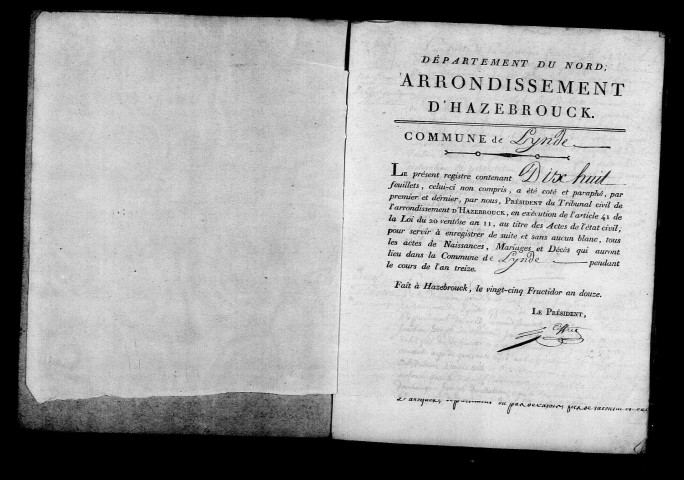 DÉPARTEMENT DU NORD,
ARRONDISSEMENT
D'HAZEBROUCK.
COMMUNE de Lynde
LE présent registre contenant Dix huit
feuillets, celui-ci non compris, a été coté et paraphé, par
premier et dérnier, par nous, PRÉSIDENT du Tribunal civil de
l'arrondissement D'HAZEBROUCK, en exécution de l'article 41 de
la Loi du 20 ventôse an 11, au titre des Actes de l'état civil,
pour servir à enregistrer de suite et sans aucun blanc, tous
les actes de Naissances, Mariages et Décès qui auront
lieu dans la Commune de Lynde pendant
le cours de l'an treize.
Fait à Hazebrouck, le vingt-cinq Fructidor an douze.
LE PRÉSIDENT,